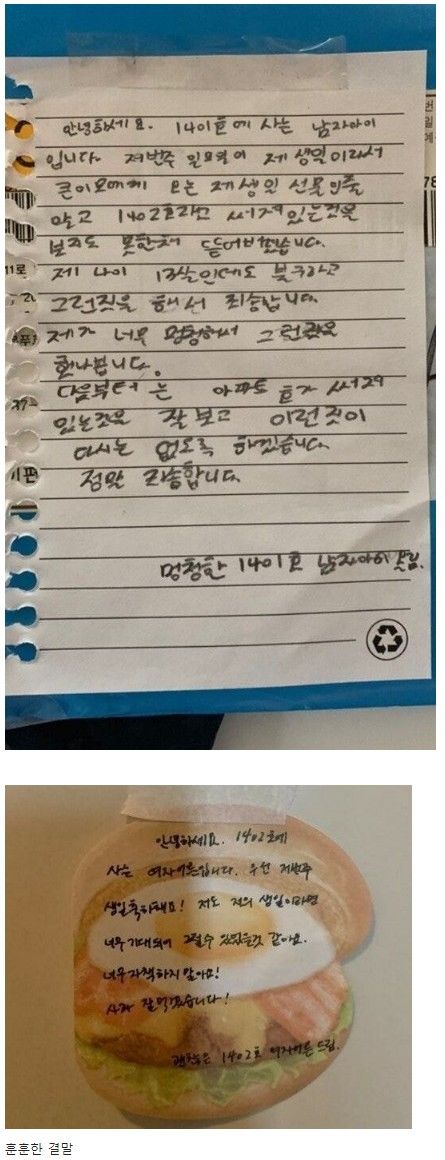 안녕하세요. 1401호에 사는 남자아이
입니다. 저번주 일요일이 제 생일이라서
큰이모에게 오는 제 생일 선물인줄
알고 1402호라고 써져있는것을
보지도 못한채 뜯어버렸습니다.
제 나이 13살인데도 불구하고
그런짓을 해서 죄송합니다.
제가 너무 멍청해서 그런짓을
했나봅니다.
다음부터는 아파트 호가 써져
있는것을 잘 보고 이런짓이
다시는 없도록 하겠습니다.
정말 죄송합니다.
멍청한 1401호 남자아이 올림.
안녕하세요. 1402호에
사는 여자어른입니다. 우선 저번주
생일축하해요! 저도 저의 생일이라면
너무 기대되어 그럴수 있었을것 같아요.
너무 자책하지 말아요!
사과 잘 먹겠습니다!
괜찮은 1402호 여자어른 드림.
훈훈한 결말